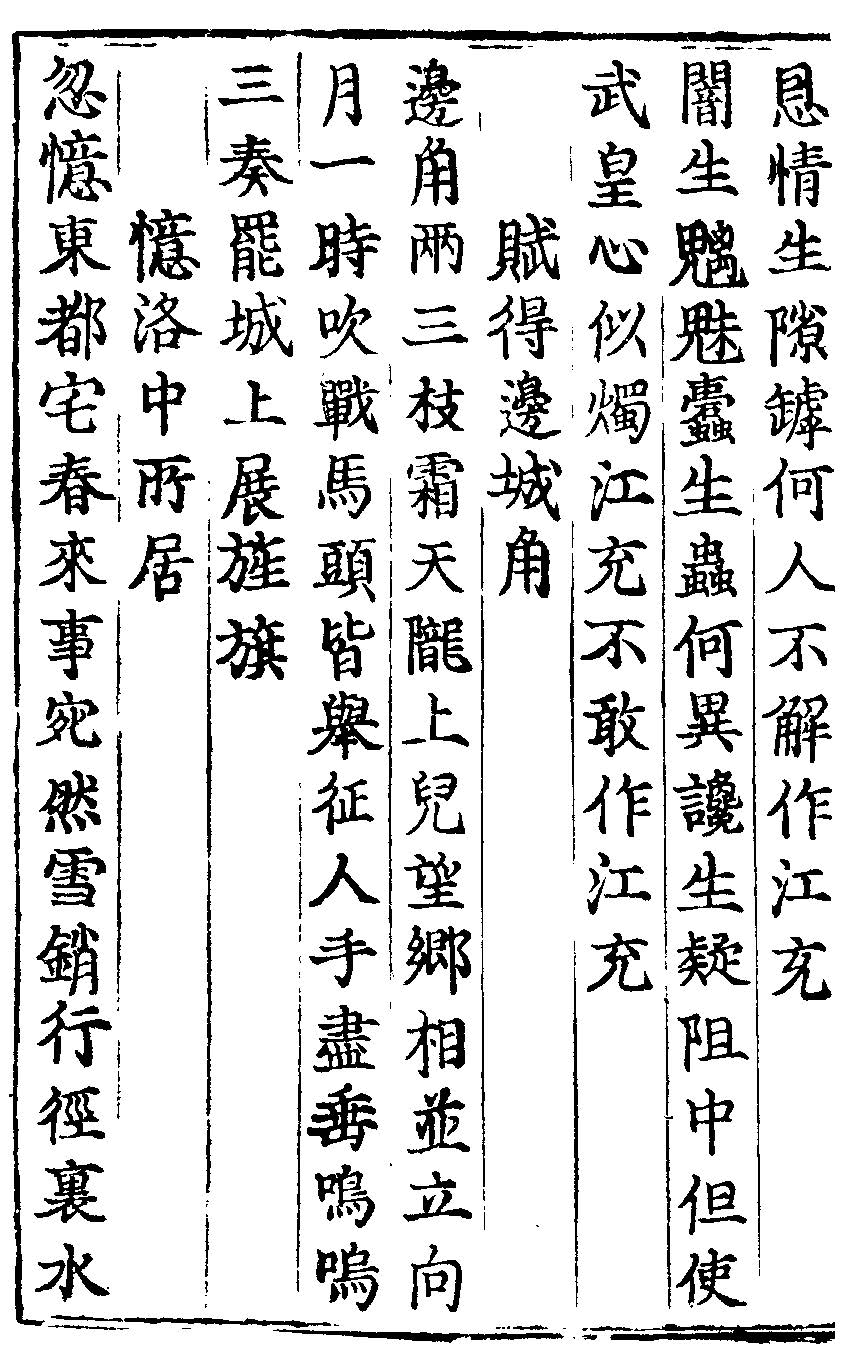 恩情生隙罅何人不解作江充
闇生魑魅蠹生蟲何異讒生疑阻中但使
武皇心似燭江充不敢作江充
賦得邊城角
邊角兩三枝霜天隴上兒望鄉相並立向
月一時吹戰馬頭皆舉征人手盡垂嗚嗚
三奏罷城上展旌旗
憶洛中所居
忽憶東都宅春來事宛然雪銷行徑裏水